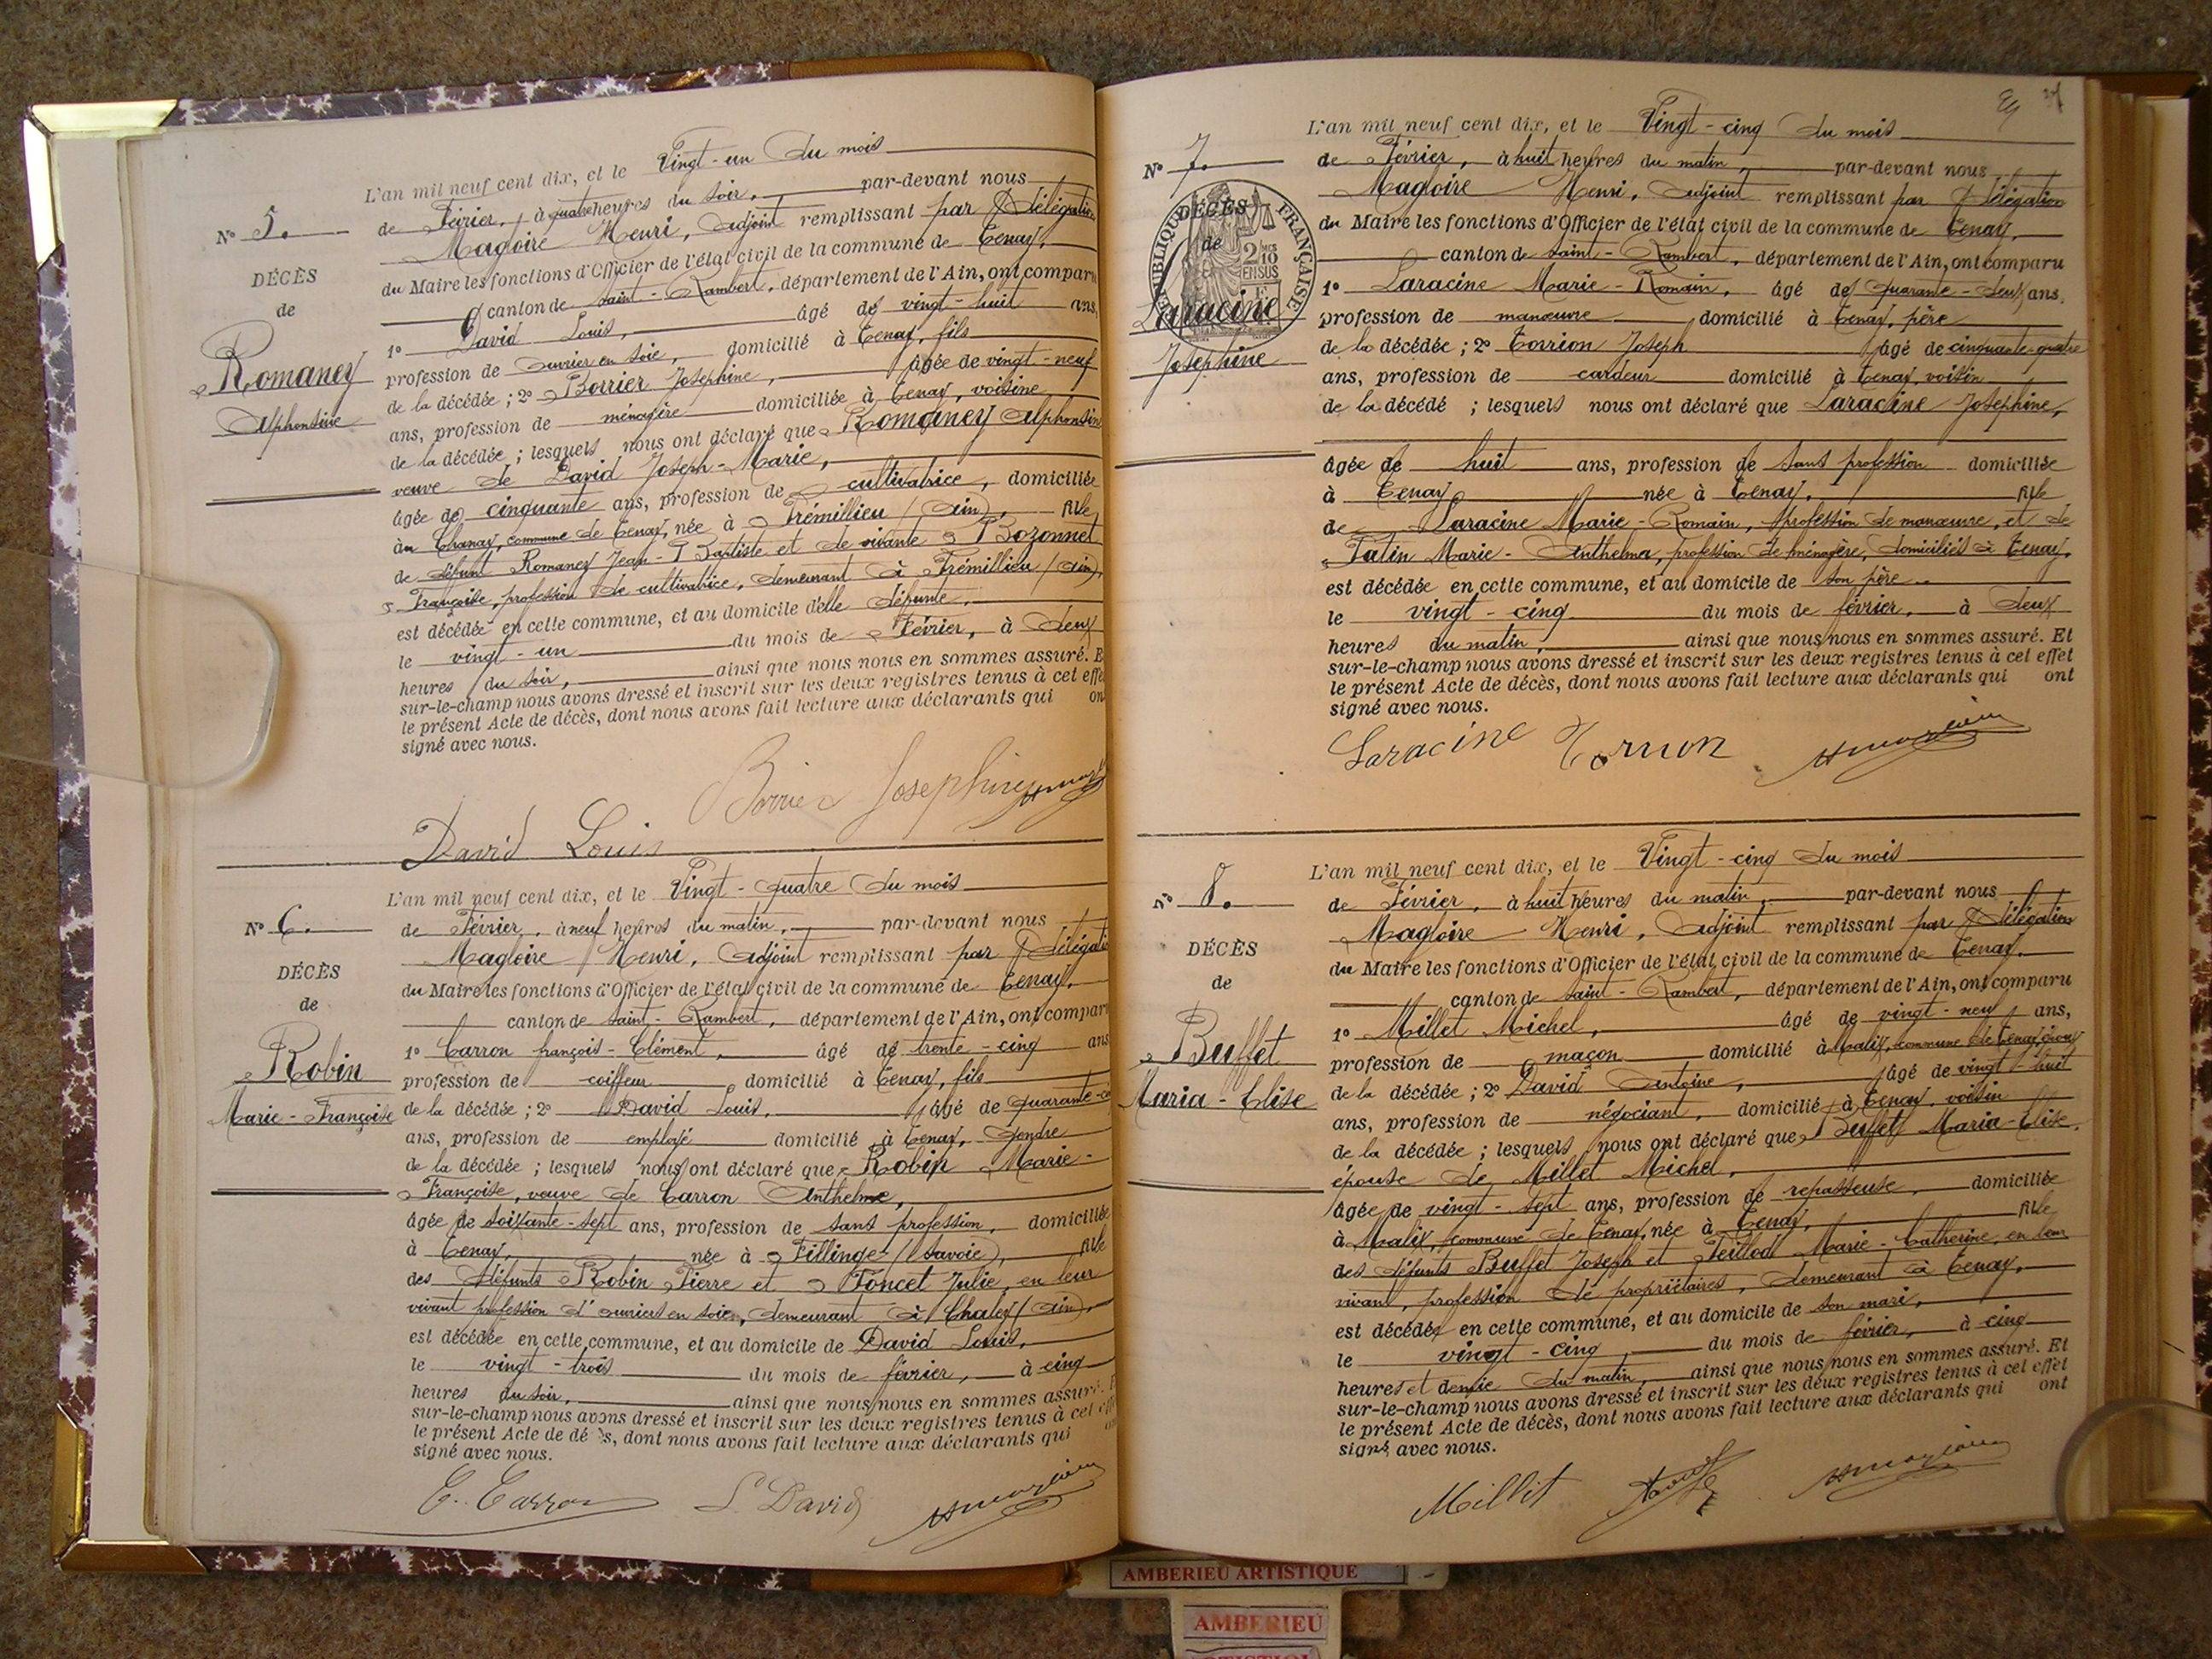 L'an mil neuf cent dix, et le Vingt-un du mois
N° 5. de Février, à quatre heures du soir, par-devant nous
Magloire Henri, adjoint remplissant par délégation
DÉCÈS du Maire les fonctions d'Officier de l'état civil de la commune de Tenay,
de canton de Saint-Rambert, département de l'Ain, ont comparu
1° David Louis, âgé de vingt-huit ans,
Romaney profession de ouvrier en soie, domicilié à Tenay, fils
de la décédée ; 2° Borrier Joséphine, âgée de vingt-neuf
Alphonsine ans, profession de ménagère domiciliée à Tenay, voisine
de la décédée ; lesquels nous ont déclaré que Romaney Alphonsine
veuve de David Joseph-Marie,
âgée de cinquante ans, profession de cultivatrice, domiciliée
au Chanay, commune de Tenay, née à Prémillieu (Ain), fille
de défunt Romaney Jean-Baptiste et de vivante Bozonnet
Françoise, profession de cultivatrice, demeurant à Prémillieu (Ain),
est décédée en cette commune, et au domicile d'elle défunte,
le vingt-un du mois de Février, à deux
heures du soir, ainsi que nous nous en sommes assuré. E
sur-le-champ nous avons dressé et inscrit sur les deux registres tenus à cet effe
le présent Acte de décès, dont nous avons fait lecture aux déclarants qui on
signé avec nous.
Borrier Josephine
David Louis
L'an mil neuf cent dix, et le Vingt-quatre du mois
N° 6. de Février, à neuf heures du matin, par-devant nous
Magloire Henri, adjoint remplissant par délégation
DÉCÈS du Maire les fonctions d'Officier de l'état civil de la commune de Tenay,
de canton de Saint-Rambert, département de l'Ain, ont comparu
1° Carron françois-Clément, âgé de trente-cinq ans
Robin profession de coiffeur domicilié à Tenay, fils
Marie-Françoise de la décédée ; 2° David Louis, âgé de quarante-
ans, profession de employé domicilié à Tenay, gendre
de la décédée ; lesquels nous ont déclaré que Robin Marie-
Françoise, veuve de Carron Anthelme,
âgée de soixante-sept ans, profession de sans profession, domiciliée
à Tenay, née à Fillinge (Savoie), fille
des défunts Robin Pierre et Foncet Julie, en leur
vivant profession d'ouvriers en soies, demeurant à Chaley (Ain),
est décédée en cette commune, et au domicile de David Louis,
le vingt-trois du mois de février, à cinq
heures du soir, ainsi que nous nous en sommes assuré.
sur-le-champ nous avons dressé et inscrit sur les deux registres tenus à cet
le présent Acte de décès, dont nous avons fait lecture aux déclarants qui
signé avec nous.
C. Carron L David
L'an mil neuf cent dix, et le Vingt-cinq du mois
N° 7. de Février, à huit heures du matin, par-devant nous
Magloire Henri, adjoint remplissant par délégation
DÉCÈS du Maire les fonctions d'Officier de l'état civil de la commune de Tenay,
de canton de Saint-Rambert, département de l'Ain, ont comparu
RÉPUBLIQUE FRANÇAISE
Laracine 1° Laracine Marie-Romain, âgé de quarante-deux ans,
profession de manœuvre domicilié à Tenay, père
Joséphine de la décédée ; 2° Torrion Joseph âgé de cinquante-quatre
ans, profession de cardeur domicilié à Tenay, voisin
de la décédé ; lesquels nous ont déclaré que Laracine Joséphine,
âgée de huit ans, profession de sans profession domiciliée
à Tenay née à Tenay, fille
de Laracine Marie-Romain, profession de manœuvre, et de
Tatin Marie-Anthelma, profession de ménagère, domiciliés à Tenay,
est décédée en cette commune, et au domicile de son père
le vingt-cinq du mois de février, à deux
heures du matin, ainsi que nous nous en sommes assuré. Et
sur-le-champ nous avons dressé et inscrit sur les deux registres tenus à cet effet
le présent Acte de décès, dont nous avons fait lecture aux déclarants qui ont
signé avec nous.
Laracine Torrion
L'an mil neuf cent dix, et le Vingt-cinq du mois
N° 8. de Février, à huit heures du matin, par-devant nous
Magloire Henri, adjoint remplissant par délégation
DÉCÈS du Maire les fonctions d'Officier de l'état civil de la commune de Tenay,
de canton de Saint-Rambert, département de l'Ain, ont comparu
1° Millet Michel, âgé de vingt-neuf ans,
Buffet profession de maçon domicilié à Malix, commune de Tenay, époux
Maria-Elise de la décédée ; 2° David Antoine, âgé de vingt-huit
ans, profession de négociant, domicilié à Tenay, voisin
de la décédée ; lesquels nous ont déclaré que Buffet Maria-Elise,
épouse de Millet Michel,
âgée de vingt-sept ans, profession de repasseuse, domiciliée
à Malix, commune de Tenay, née à Tenay, fille
des défunts Buffet Joseph et Teillod Marie-Catherine, en leur
vivant, profession de propriétaires, demeurant à Tenay,
est décédée en cette commune, et au domicile de son mari,
le vingt-cinq du mois de février, à cinq
heures et demie du matin, ainsi que nous nous en sommes assuré. Et
sur-le-champ nous avons dressé et inscrit sur les deux registres tenus à cet effet
le présent Acte de décès, dont nous avons fait lecture aux déclarants qui ont
signé avec nous.
Millit
AMBERIEU ARTISTIQUE
AMBERIEU